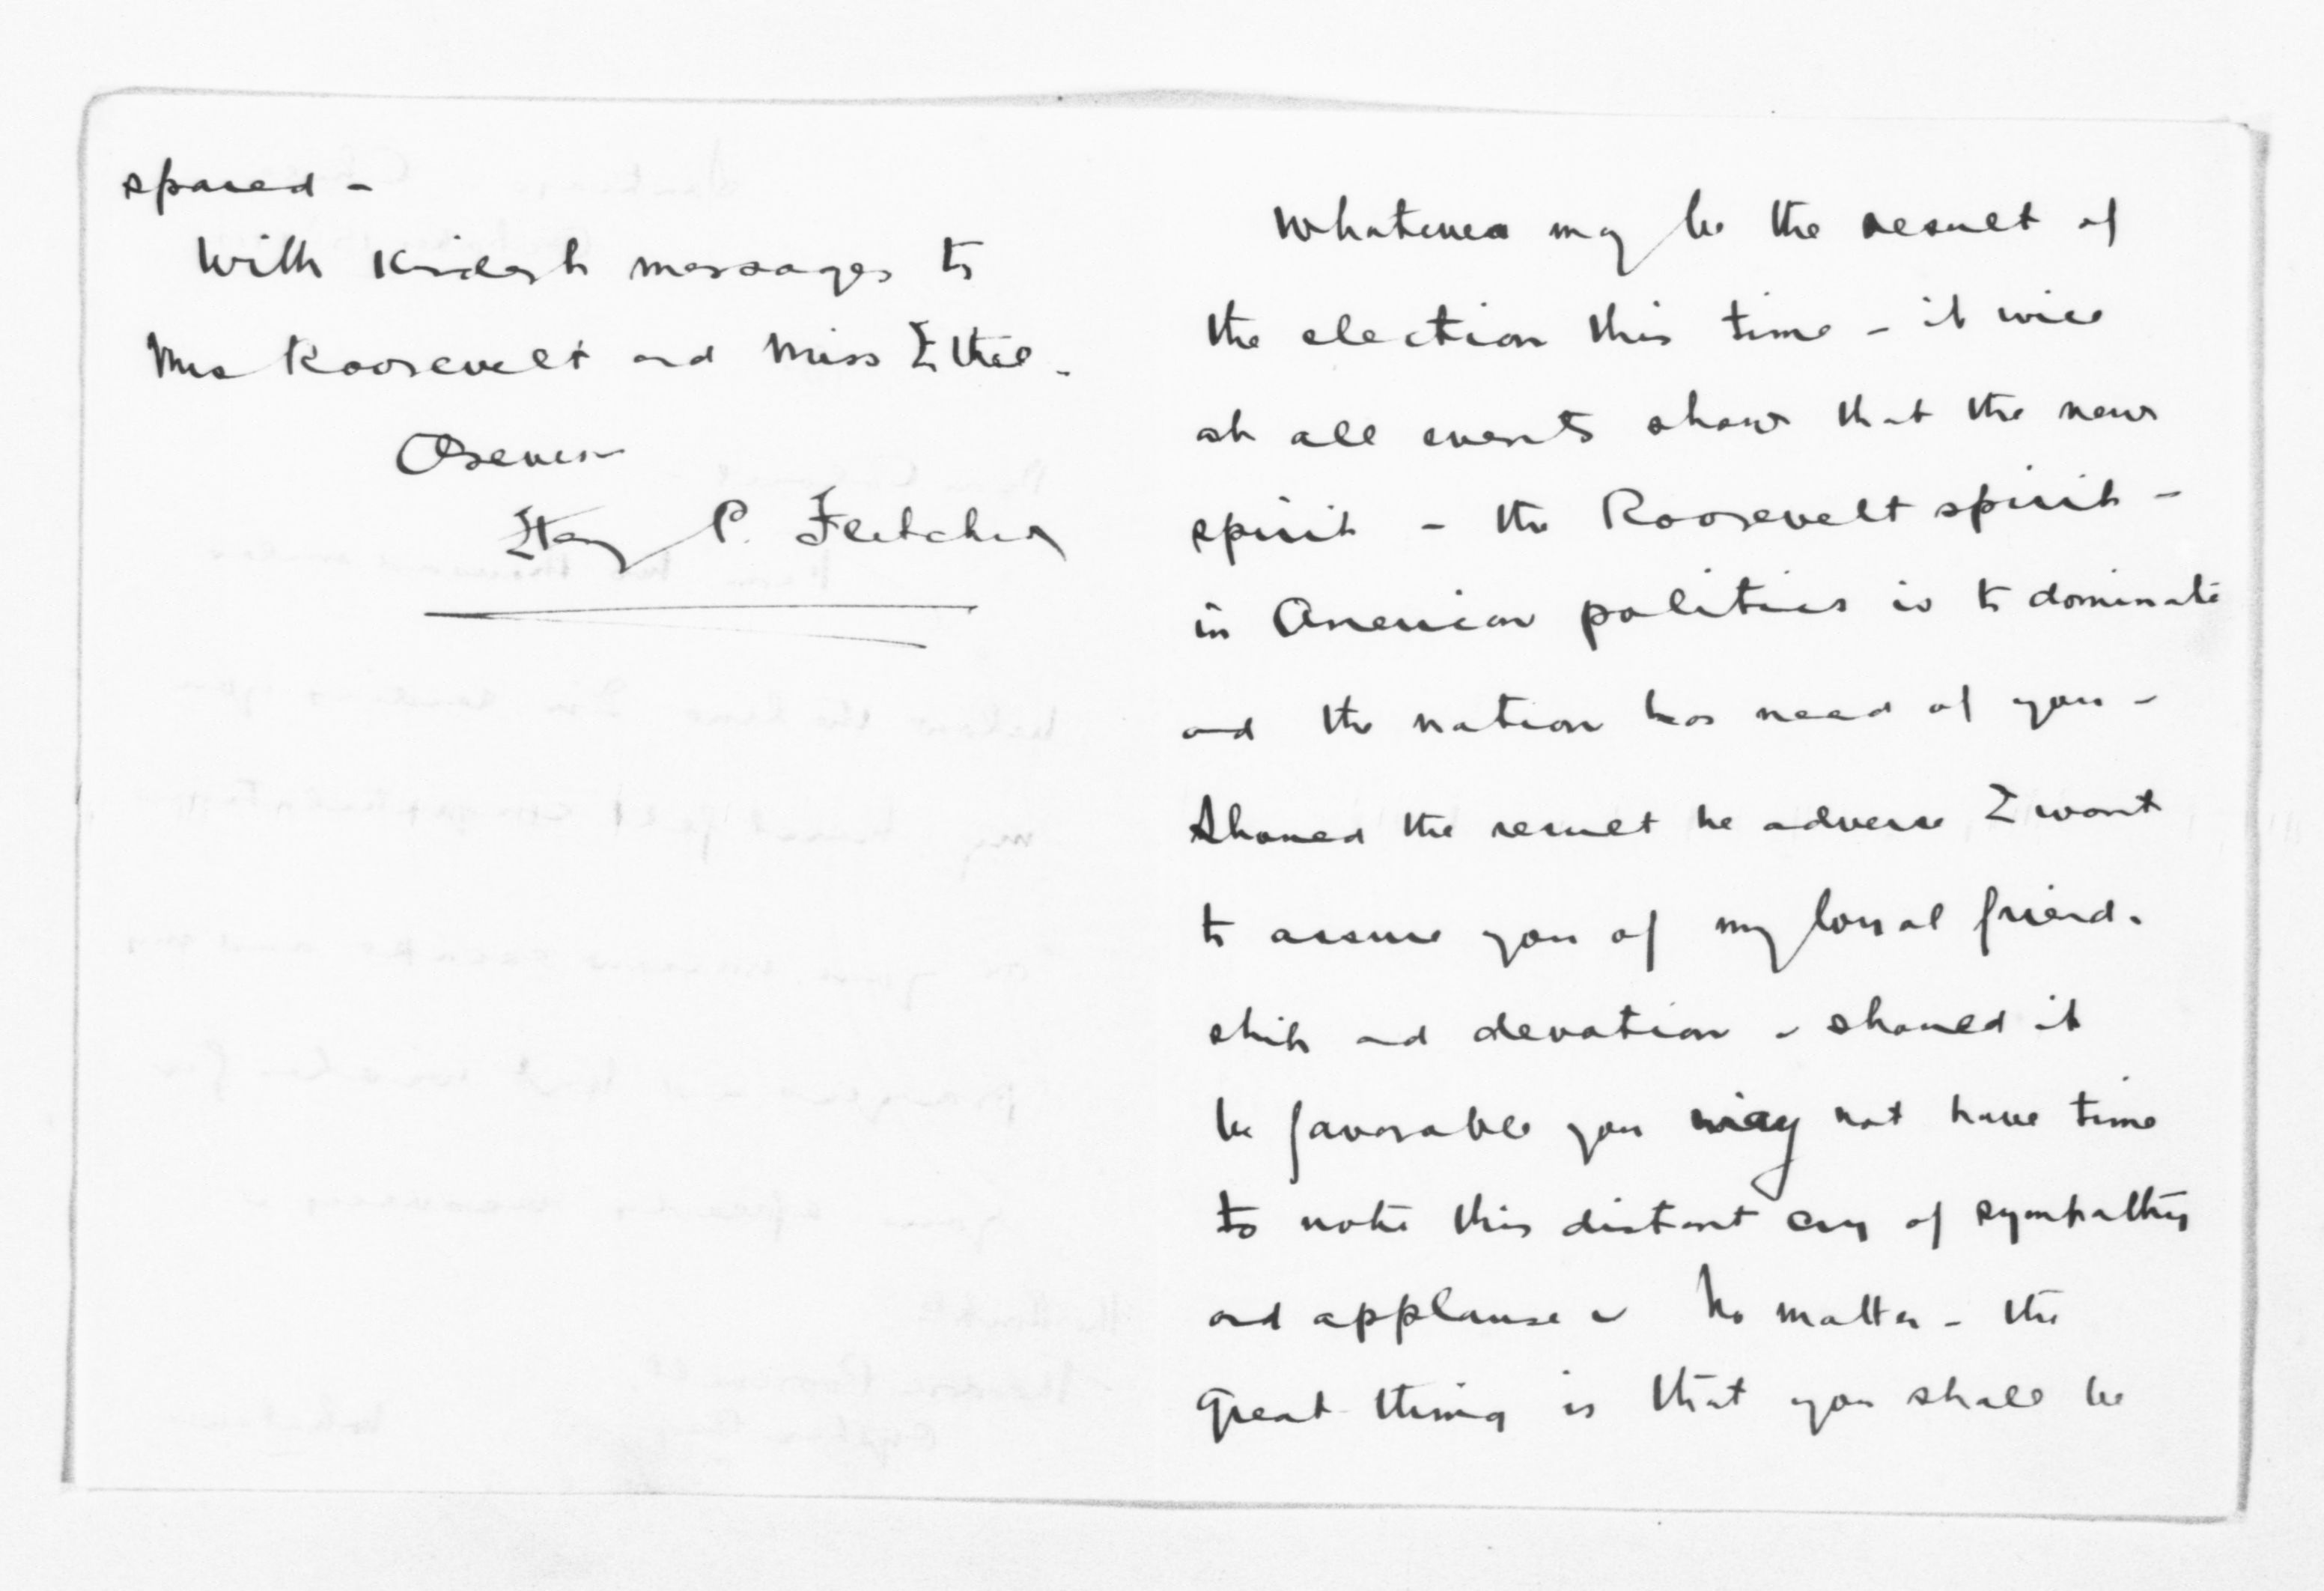 Whatever may be the result of
the election this time - it will
at all events show that the new
spirit - the Roosevelt spirit -
in American politics is to dominate
and the nation has need of you -
Should the result be adverse I want
to assure you of my loyal friend-
ship and devotion - should it
be favorable you may not have time
to note this distant cry of sympathy
and applause - No matter - the
great thing is that you shall be
spared -
With kindest messages to
Mrs Roosevelt and Miss Ethel -
As ever
Henry P. Fletcher